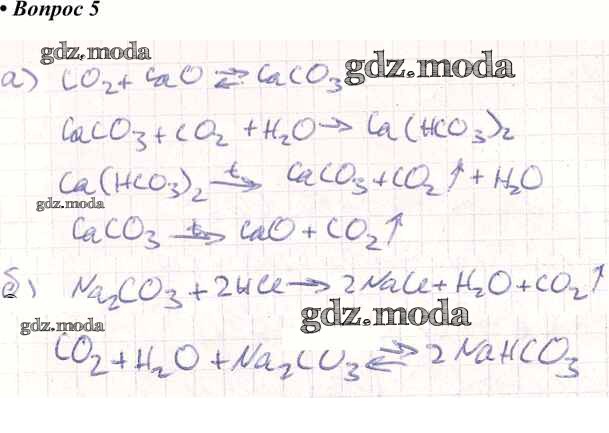 • Вопрос 5
gdz.moda
а) CO₂ + CaO ⇄ CaCO₃ gdz.moda
CaCO₃ + CO₂ + H₂O → Ca(HCO₃)₂
Ca(HCO₃)₂ →t CaCO₃ + CO₂↑ + H₂O
gdz.moda
CaCO₃ →t CaO + CO₂↑
б) Na₂CO₃ + 2HCl → 2NaCl + H₂O + CO₂↑
gdz.moda gdz.moda
CO₂ + H₂O + Na₂CO₃ ⇄ 2NaHCO₃